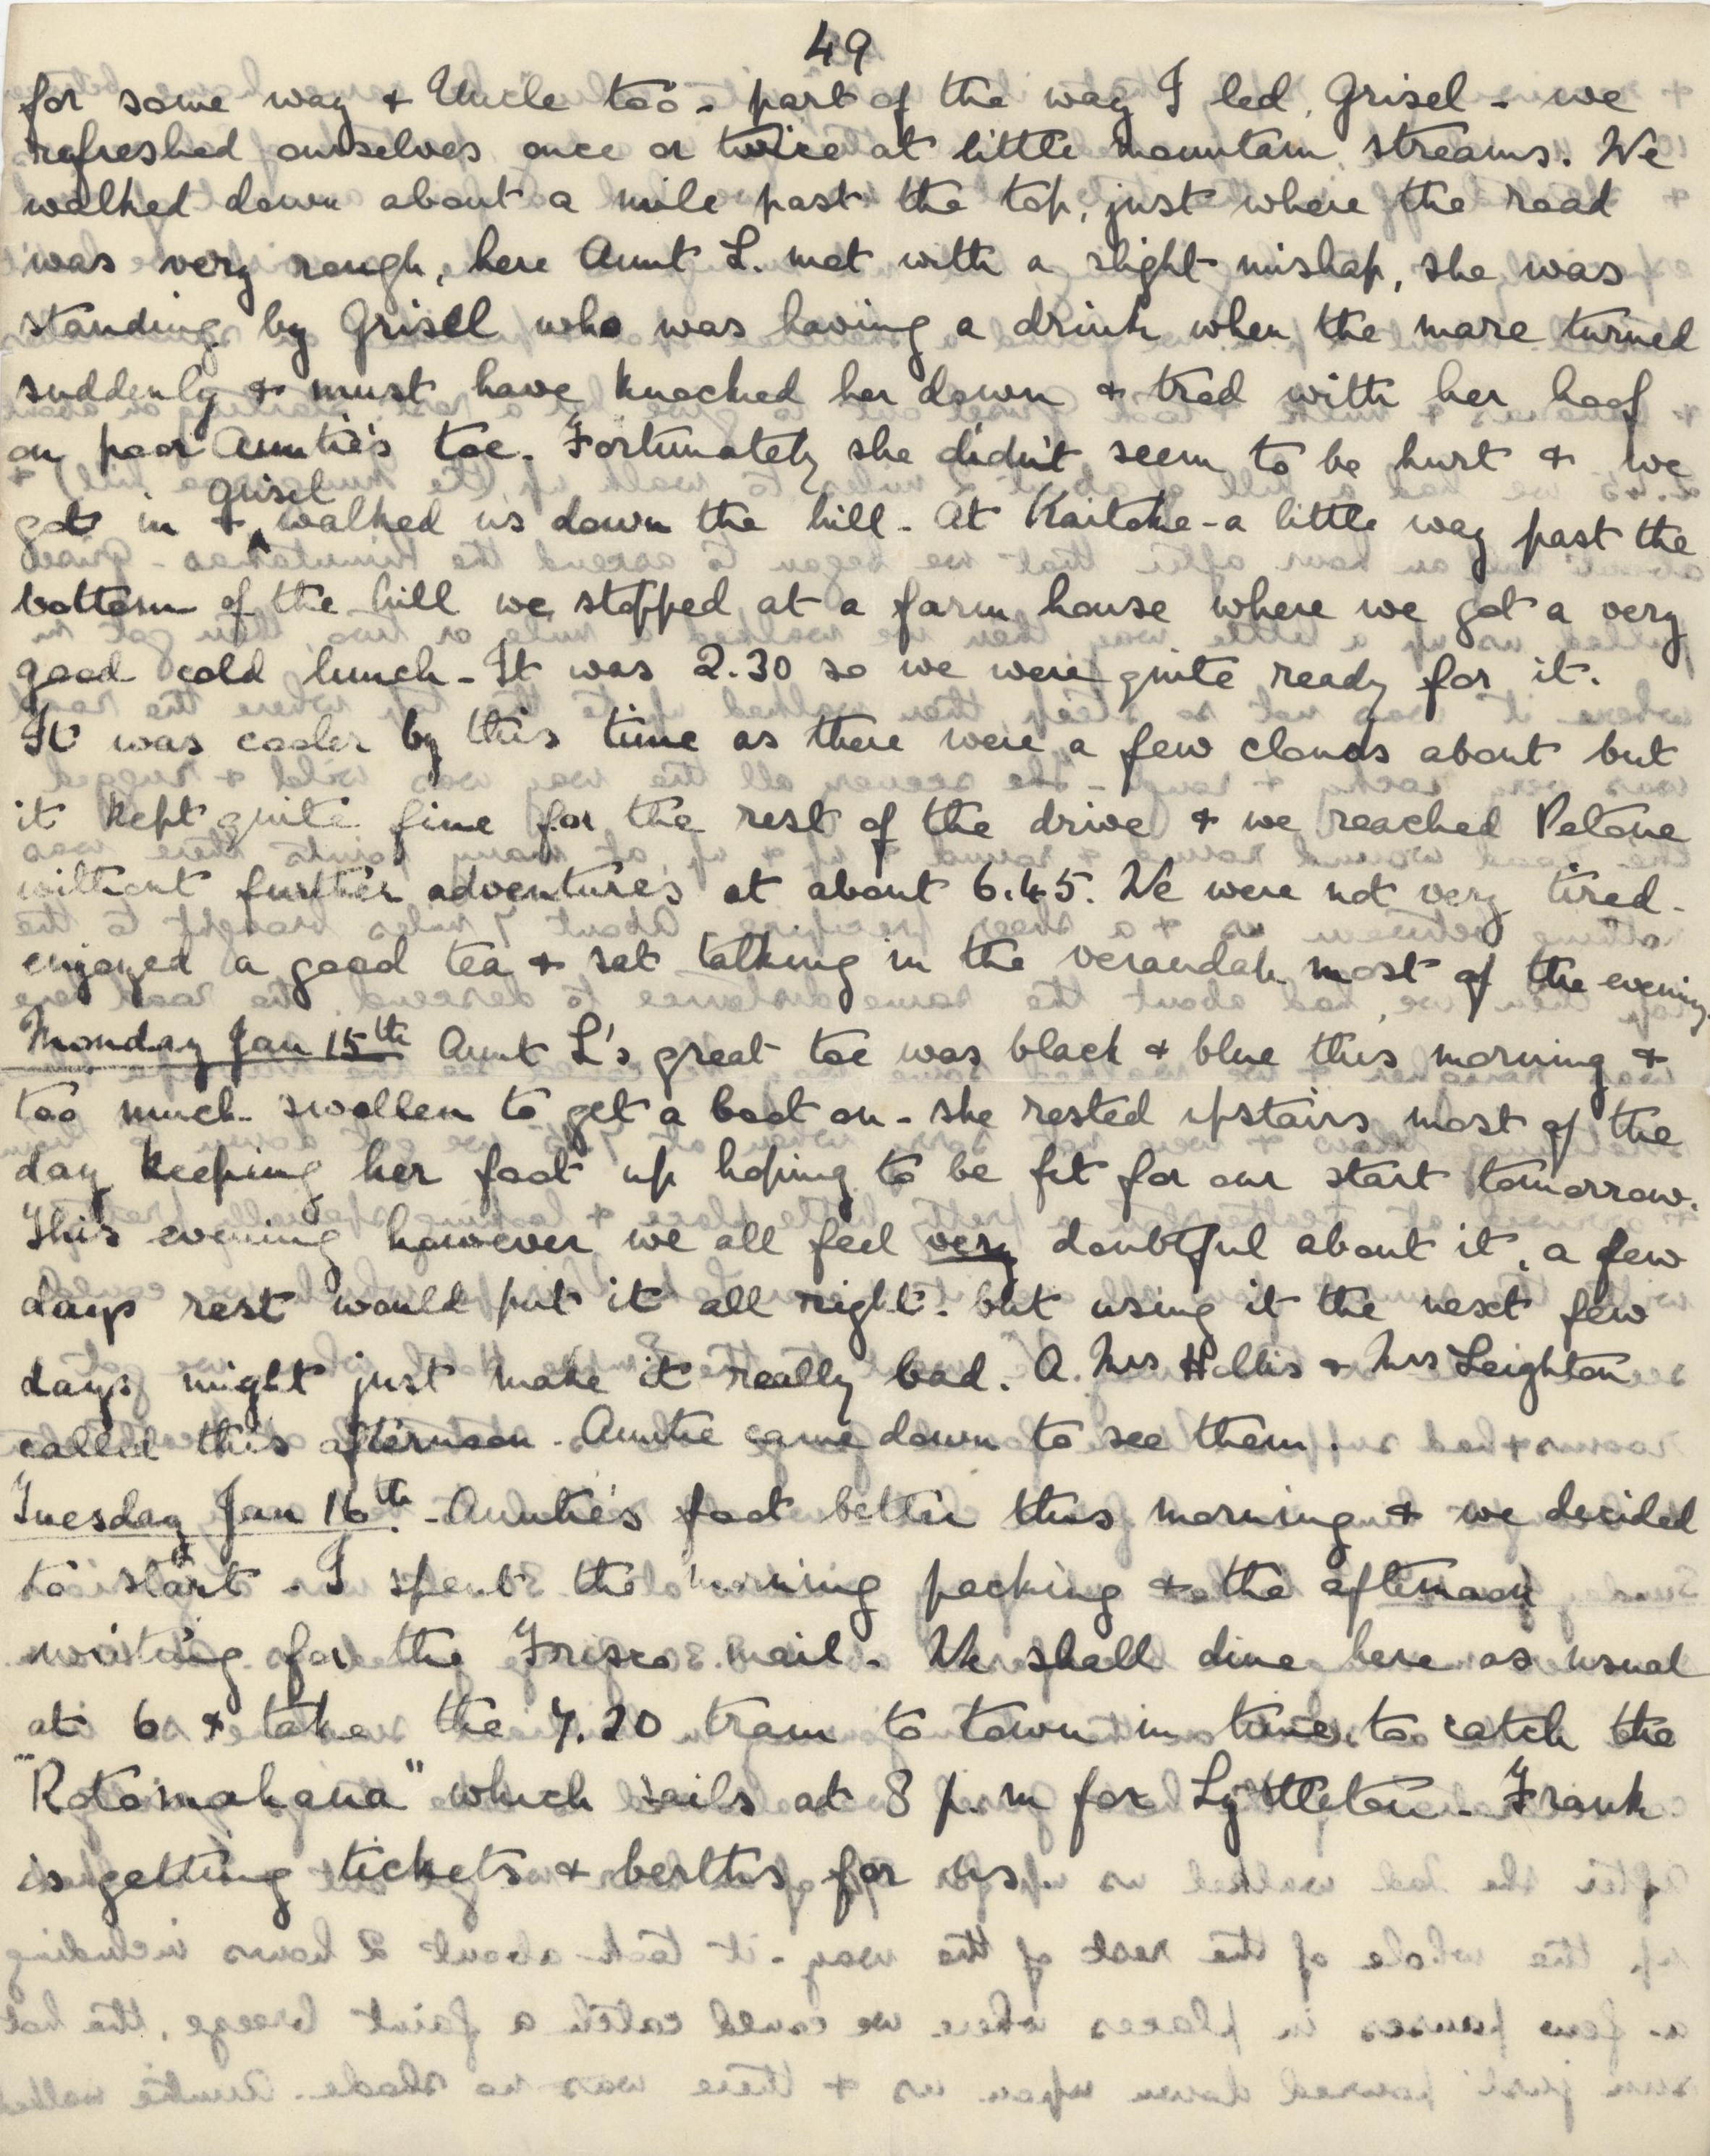 49
for some way & Uncle too - part of the way I led Grisel - we
refreshed ourselves once or twice at little mountain streams. We
walked down about a mile past the top, just where the road
was very rough, here Aunt L. met with a slight mishap, she was
standing by Grisell who was having a drink when the mare turned
suddenly & must have knocked her down & trod with her hoof
on poor Auntie's toe. Fortunately she didn't seem to be hurt & we
got in & Grisel walked us down the hill - At Kaitoke - a little way past the
bottom of the hill we stopped at a farm house where we got a very
good cold lunch - It was 2.30 so we were quite ready for it.
It was cooler by this time as there were a few clouds about but
it kept quite fine for the rest of the drive & we reached Petone
without further adventures at about 6.45. We were not very tired -
enjoyed a good tea & sat talking in the verandah most of the evening.
Monday Jan 15th Aunt L's great toe was black & blue this morning &
too much swollen to get a boot on - she rested upstairs most of the
day keeping her foot up hoping to be fit for our start tomorrow.
This evening however we all feel very doubtful about it, a few
days rest would put it all right - but using it the next few
days might just make it really bad. A. Mrs Hollis & Mrs Leighton
called this afternoon - Auntie came down to see them.
Tuesday Jan 16th. - Auntie's foot better this morning & we decided
to start - I spent the morning packing & the afternoon
writing for the Frisco mail - We shall dine here as usual
at 6 & take the 7.20 tram to town in time to catch the
"Rotomahana" which sails at 8 p.m for Lyttleton - Frank
is getting tickets & berths for us